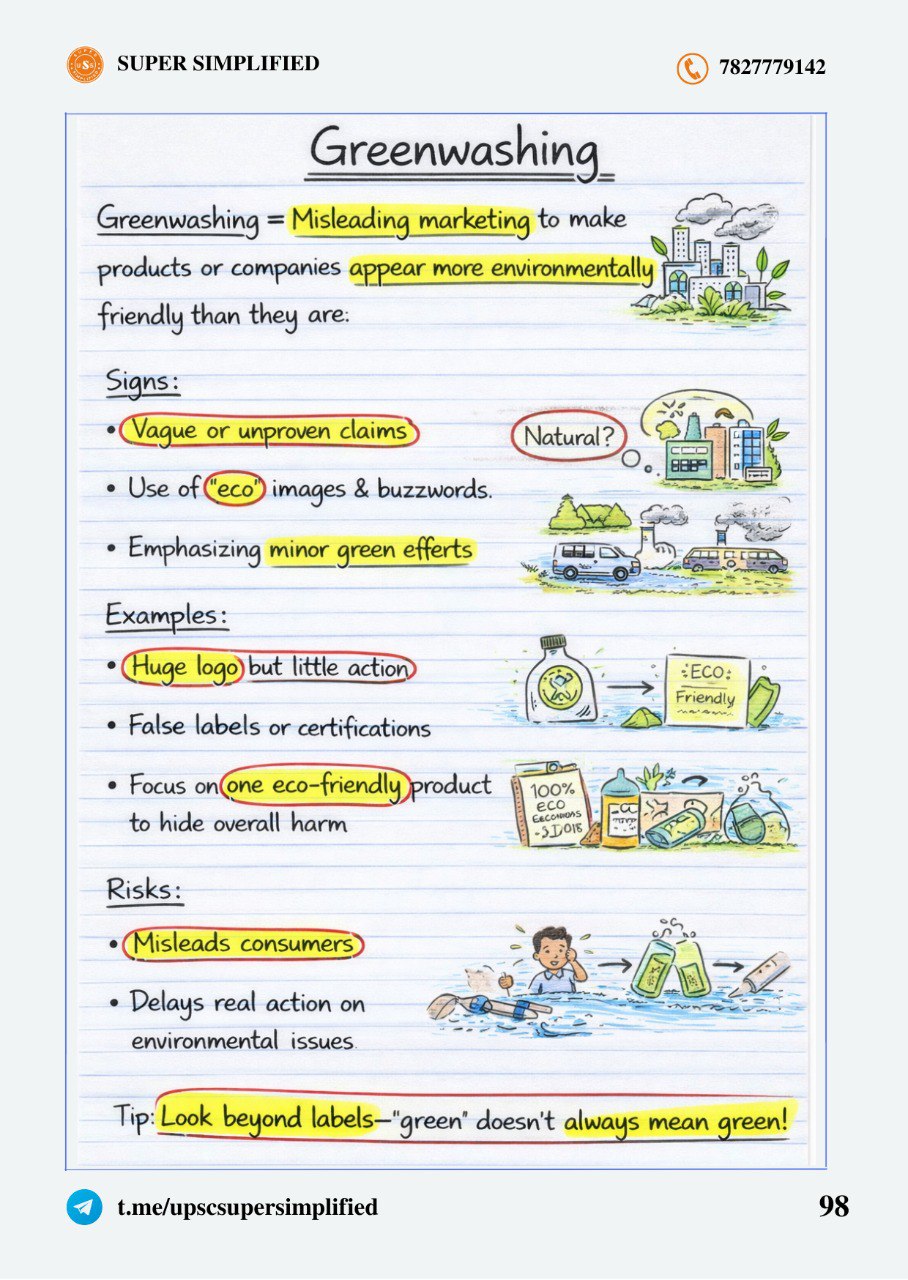 SUPER SIMPLIFIED
7827779142
Greenwashing
Greenwashing = Misleading marketing to make
products or companies appear more environmentally
friendly than they are:
Signs:
• Vague or unproven claims
Natural?
• Use of "eco" images & buzzwords.
• Emphasizing minor green efferts
Examples:
• Huge logo but little action
ECO
Friendly
• False labels or certifications
• Focus on one eco-friendly product
to hide overall harm
100%
ECO
Risks:
• Misleads consumers
• Delays real action on
environmental issues.
Tip: Look beyond labels—"green" doesn't always mean green!
t.me/upscsupersimplified
98